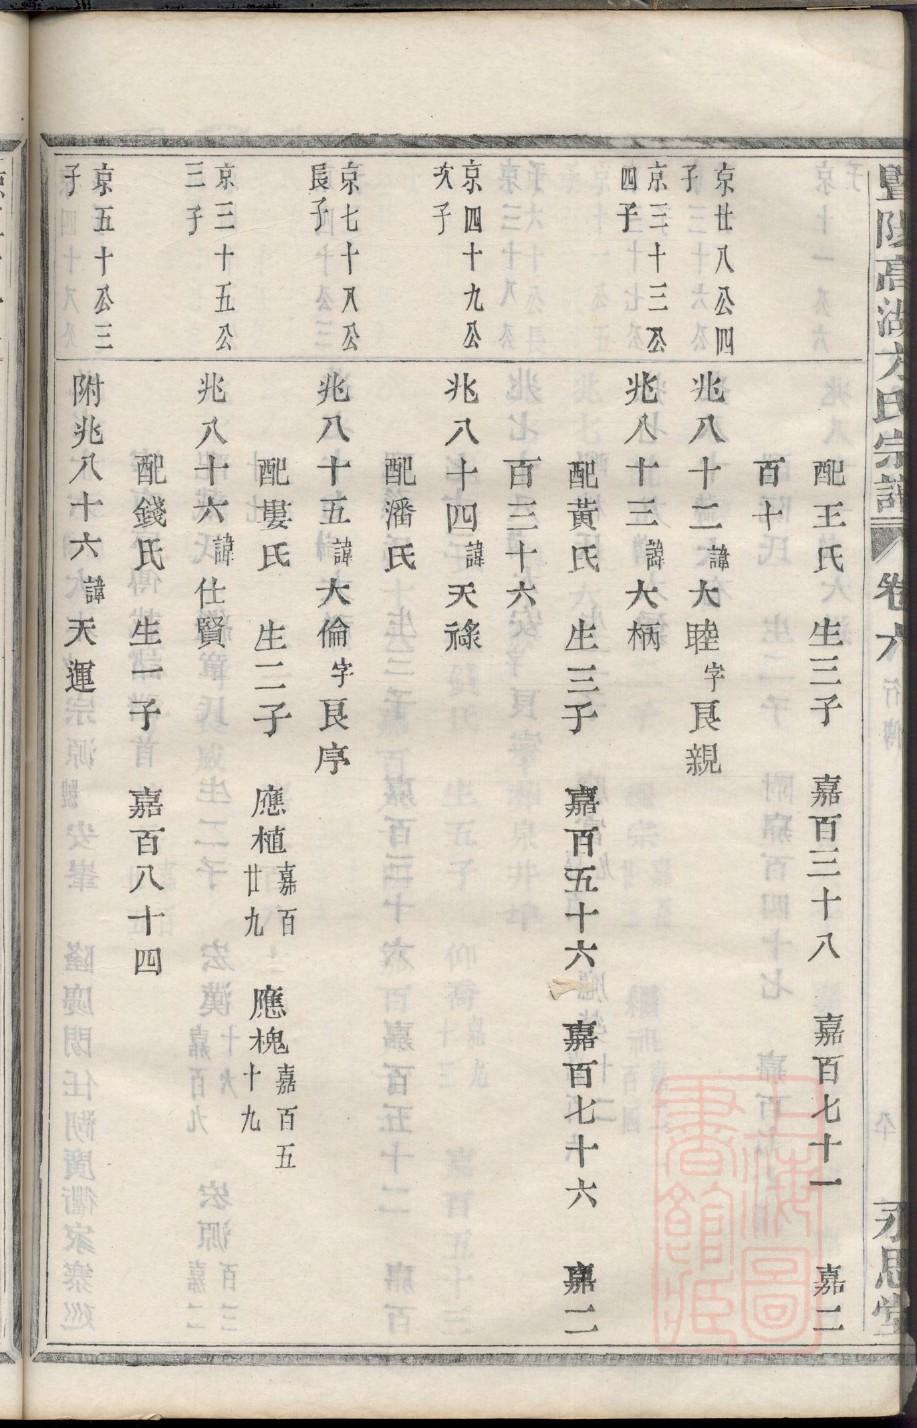 暨陽高湖方氏宗譜 卷六 行傳 永思堂
配王氏 生三子 嘉百三十八 嘉百七十一 嘉二
百十
京廿八公四
子
兆八十二諱大睦字艮親
京三十三公
四子
兆八十三諱大柄
配黃氏 生三子 嘉百五十六 嘉百七十六 嘉二
百三十六
京四十九公
次子
兆八十四諱天祿
配潘氏
京七十八公
長子
兆八十五諱大倫字艮序
配婁氏 生二子 應植嘉百廿九 應槐嘉百五十九
京三十五公
三子
兆八十六諱仕賢
配錢氏 生一子 嘉百八十四
京五十公三
子
附兆八十六諱天運